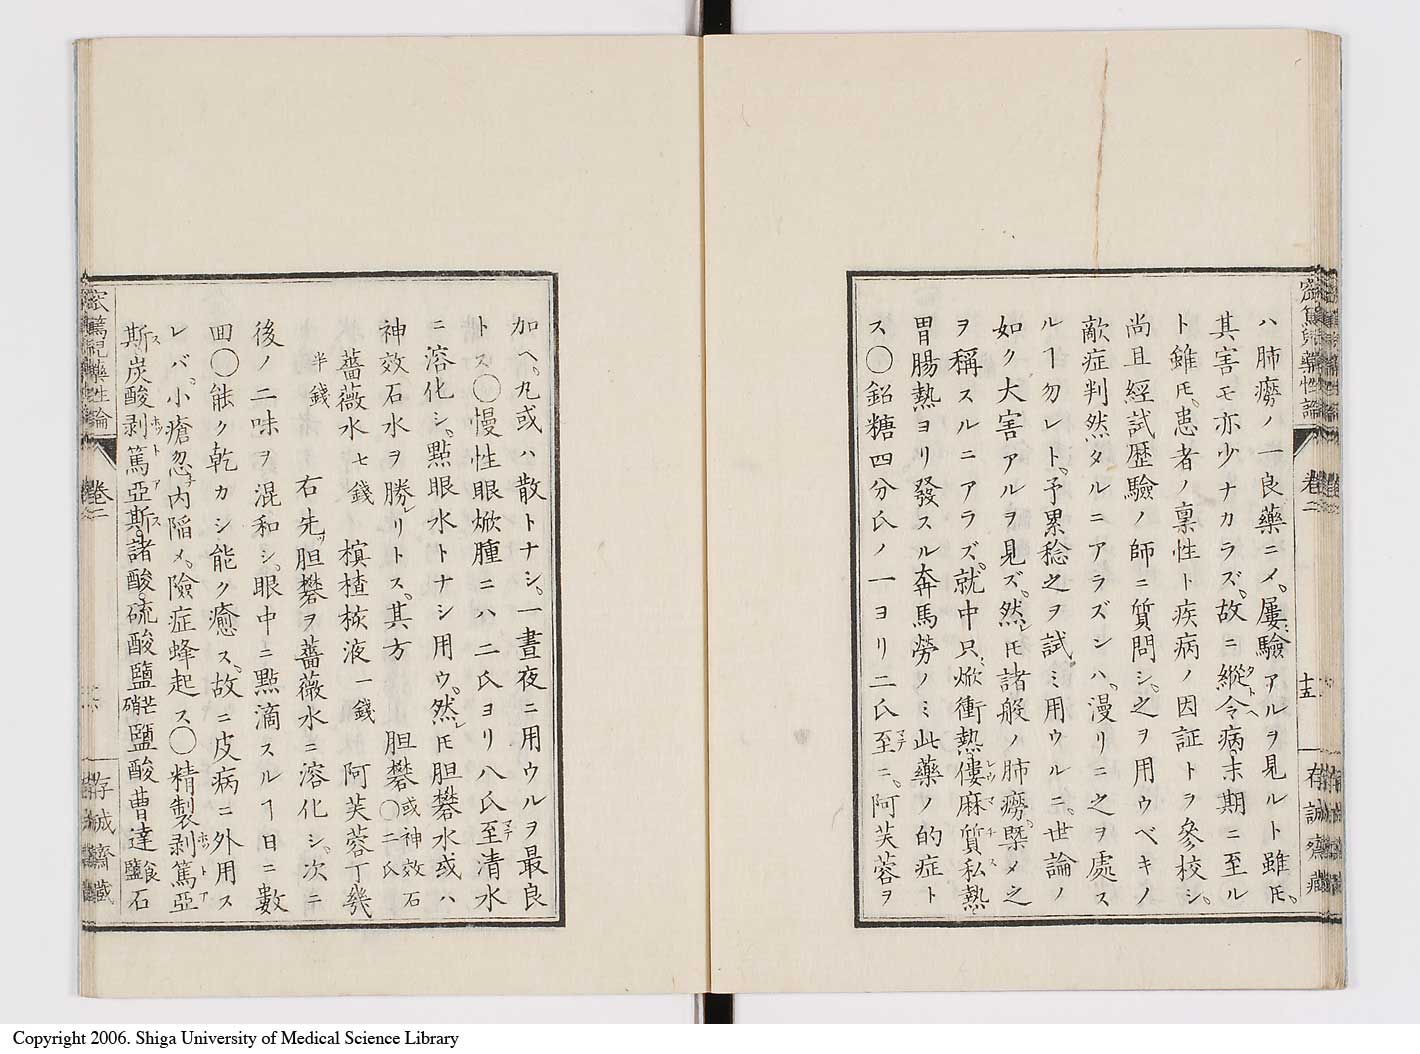 ハ肺癆ノ一良藥ニメ、屢驗アルヲ見ルト雖𪜈、
其害モ亦少ナカラズ、故ニ縱令病末期ニ至ル
ト雖𪜈、患者ノ稟性ト疾病ノ因証トヲ參校シ、
尚且經試歴驗ノ師ニ質問シ、之ヲ用ウベキノ
敵症判然タルニアラズンハ、漫リニ之ヲ處ス
ルヿ勿レト、予累稔之ヲ試ミ用ウルニ、世論ノ
如ク大害アルヲ見ズ、然𪜈諸般ノ肺癆、槩メ之
ヲ稱スルニアラズ、就中只焮衝熱僂麻質私熱
胃腸熱ヨリ發スル奔馬勞ノミ此藥ノ的症ト
ス〇鉛糖四分氏ノ一ヨリ二氏至ニ、阿芙蓉ヲ
十五
存誠齋藏
加ヘ、丸或ハ散トナシ、一晝夜ニ用ウルヲ最良
トス〇慢性眼焮腫ニハ二氏ヨリ八氏至清水
ニ溶化シ、點眼水トナシ用ウ、然レ𪜈胆礬水或ハ
神效石水ヲ勝レリトス、其方 胆礬 或神效石〇二氏
薔薇水七錢 榠楂核液一錢 阿芙蓉丁幾
半錢 右先胆礬ヲ薔薇水ニ溶化シ、次ニ
後ノ二味ヲ混和シ、眼中ニ點滴スルヿ日ニ數
回〇能ク乾カシ能ク癒ス、故ニ皮病ニ外用ス
レバ、小瘡忽チ内陷メ、險症蜂起ス〇精製剥篤亞
斯炭酸剥篤亞斯諸酸、硫酸鹽芒硝鹽酸曹達食鹽石
窊篤兒藥性論
卷二
存誠齋藏